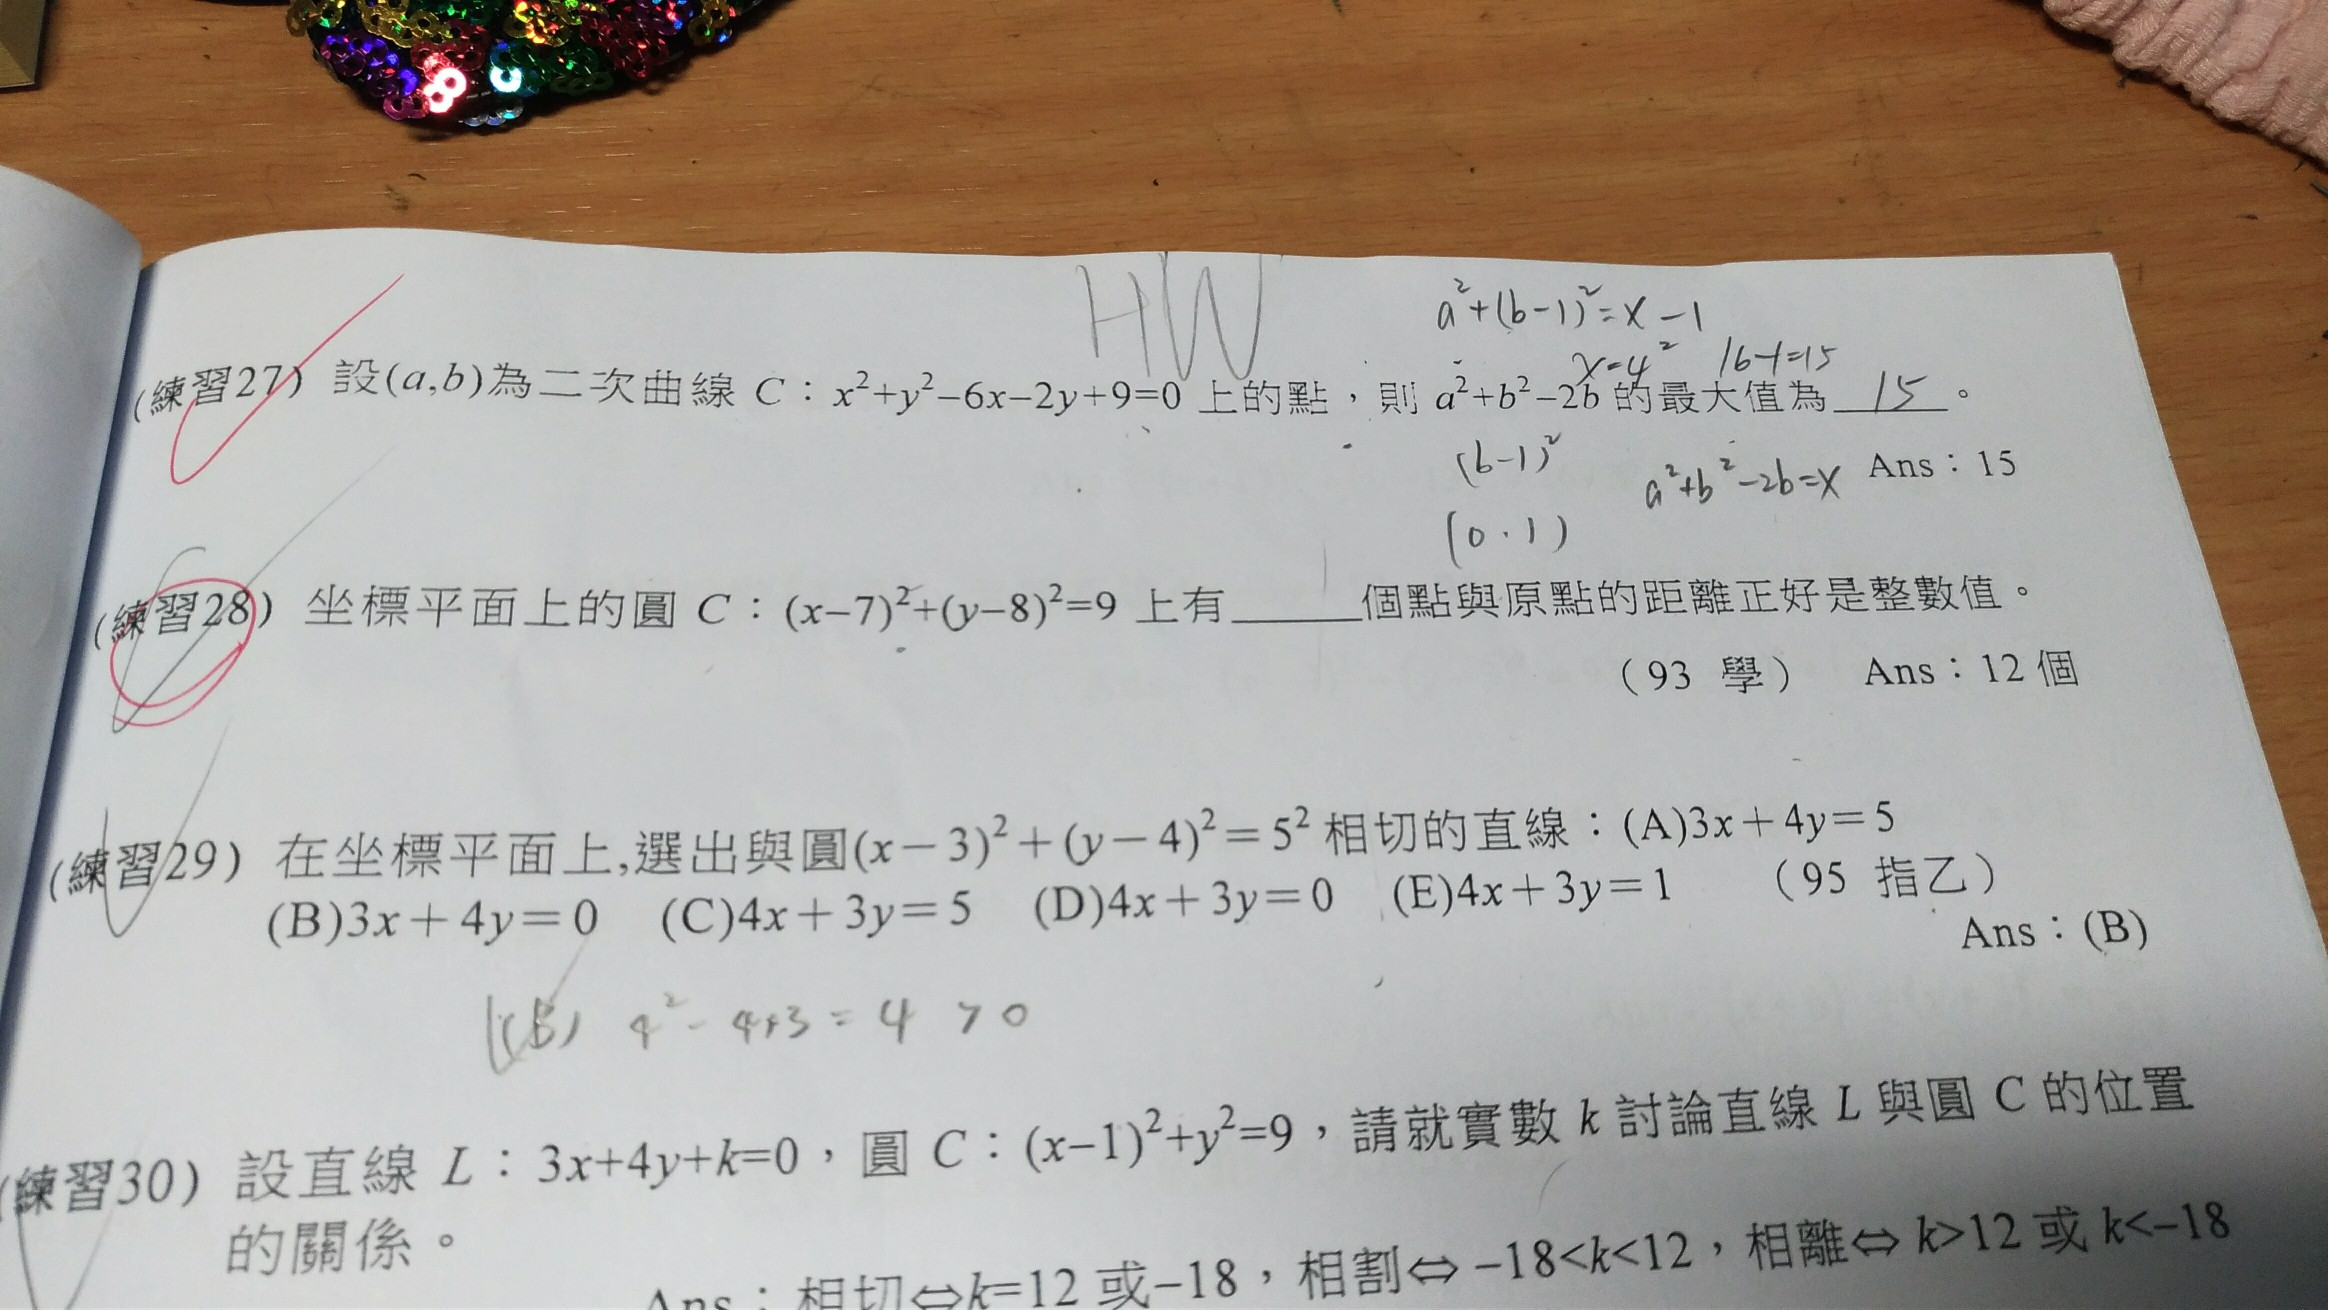 HW
a²+(b-1)²=x-1
x=4² 16-1=15
(練習27) 設(a,b)為二次曲線 C：x²+y²-6x-2y+9=0 上的點，則 a²+b²-2b 的最大值為 15 。
(b-1)² a²+b²-2b=x Ans：15
(0.1)
(練習28) 坐標平面上的圓 C：(x-7)²+(y-8)²=9 上有_____個點與原點的距離正好是整數值。
（93 學） Ans：12 個
(練習29) 在坐標平面上,選出與圓(x-3)²+(y-4)²=5²相切的直線：(A)3x+4y=5
(B)3x+4y=0 (C)4x+3y=5 (D)4x+3y=0 (E)4x+3y=1 （95 指乙）
Ans：(B)
(B) 4²- 4+3 = 4 > 0
(練習30) 設直線 L：3x+4y+k=0，圓 C：(x-1)²+y²=9，請就實數 k 討論直線 L 與圓 C 的位置
的關係。
Ans：相切⇔k=12 或-18，相割⇔-18<k<12，相離⇔k>12 或 k<-18